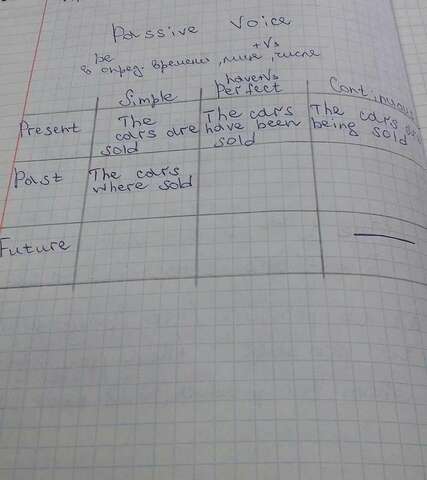 Passive Voice
be
в опред. времени, лице, числе + V3
have+V3
Simple Perfect Continuous
Present The The cars The cars are
cars are have been being sold
sold sold
Past The cars
where sold
Future